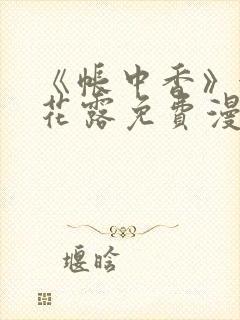 《帐中香》
花露免费漫
堰晗